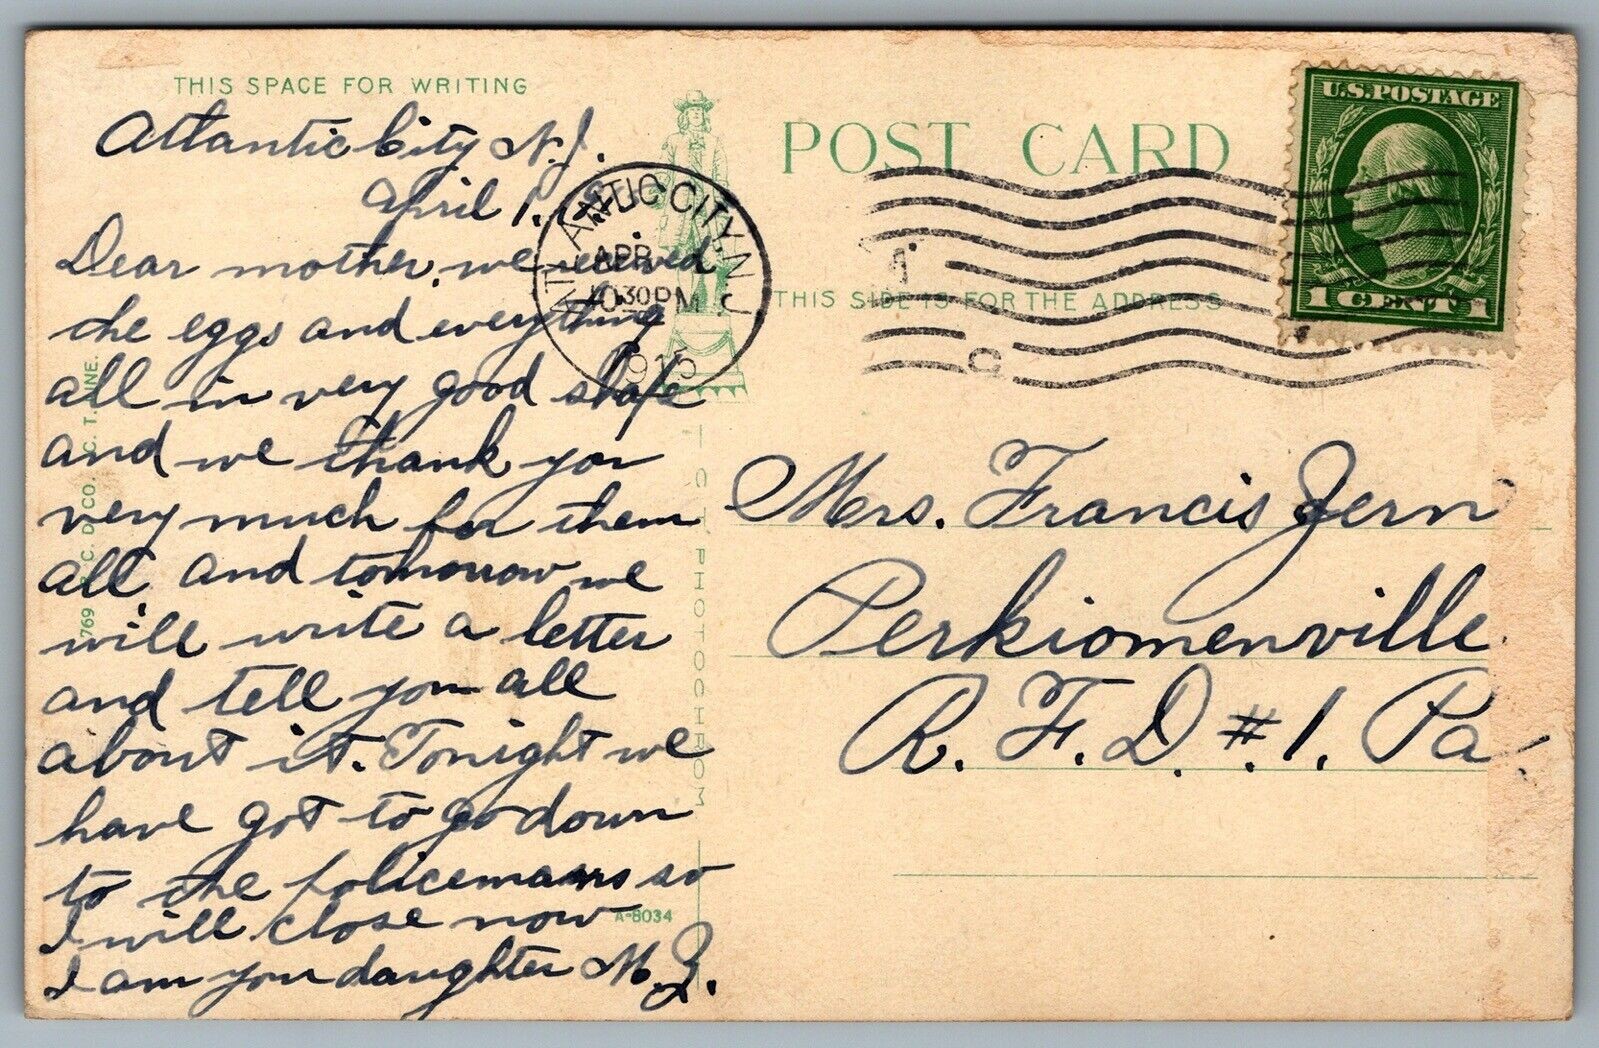 THIS SPACE FOR WRITING
Atlantic City N.J.
April 1.
Dear mother, we received
the eggs and everything
all in very good shafe
and we thank you
very much for them
all and tomorrow we
will write a letter
and tell you all
about it. Tonight we
have got to go down
to the policemans so
I will close now
I am your daughter M. Z.
A-8034
ATLANTIC CITY, N.J.
APR
1030PM
1915
POST CARD
THIS SIDE IS FOR THE ADDRESS
U.S. POSTAGE
1 CENT 1
Mrs. Francis Zern
Perkiomenville
R. F. D. #1. Pa
C T PHOTOCHROM